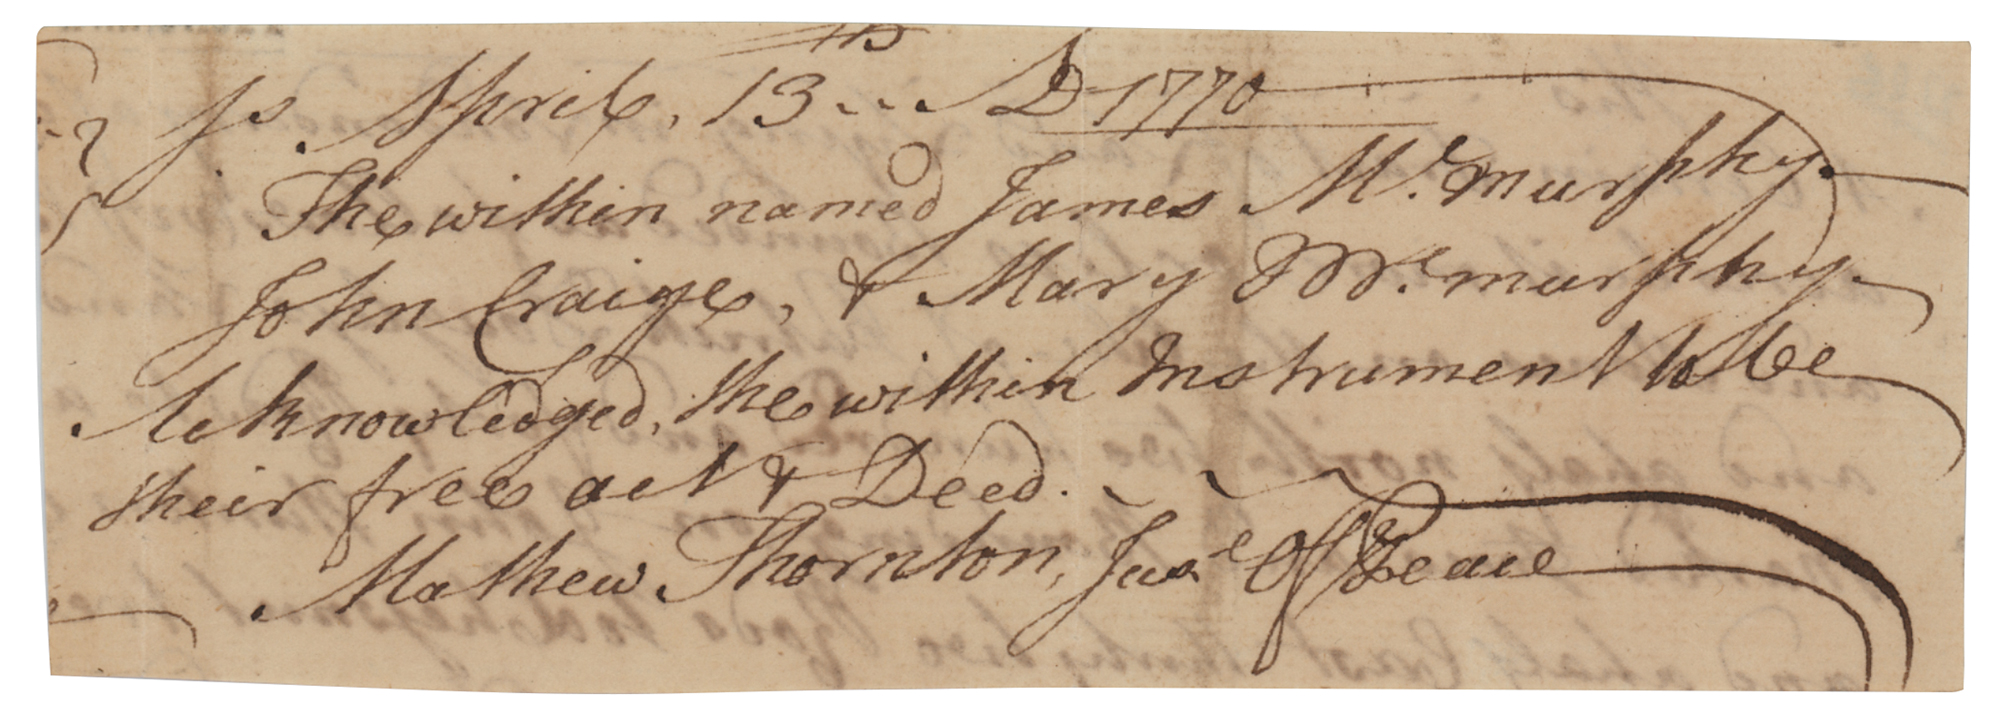 ss. April, 13th.. AD 1770
The within named James Mc.murphy.
John Craige, & Mary Mc.murphy.
Acknowledged, the within Instrument to be
their free act & Deed.
Mathew Thornton, Juse Of Peace